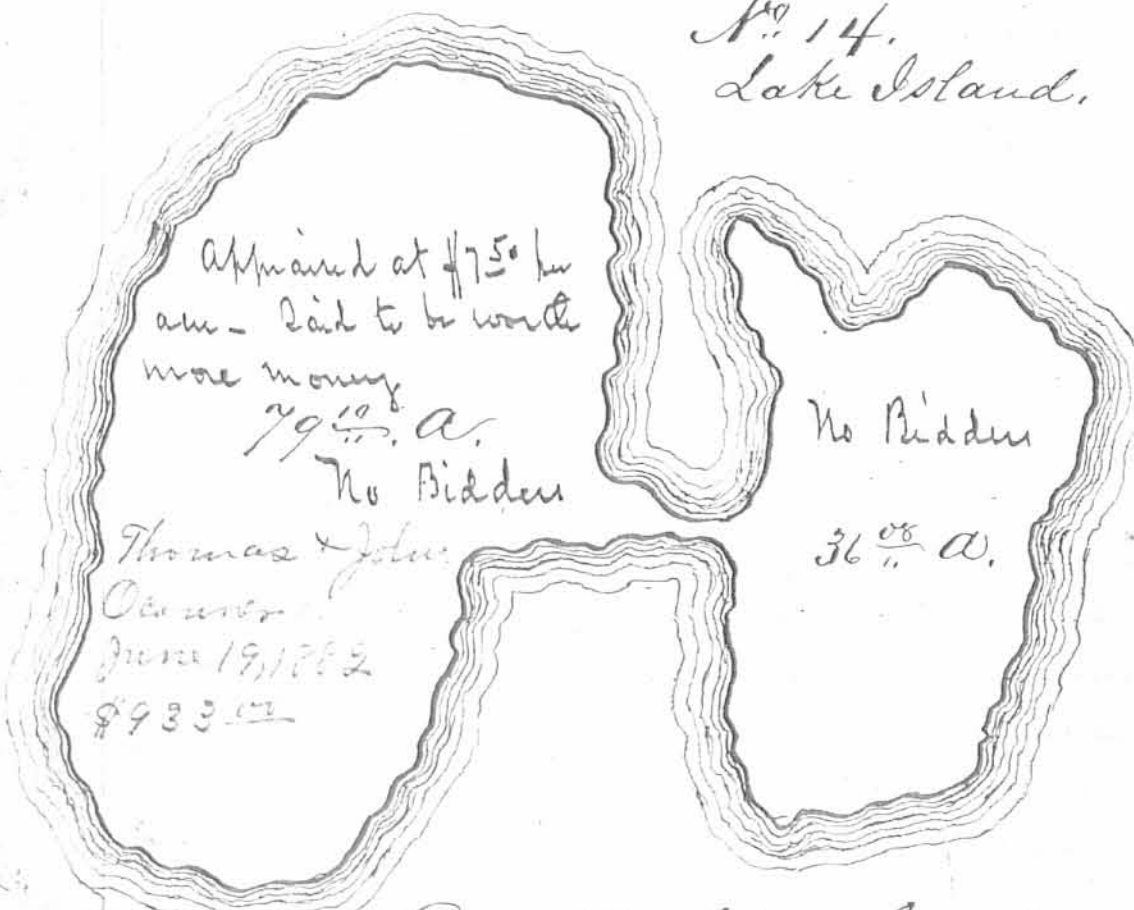 No. 14.
Lake Island.
Appraised at $7 50 per
acre - Said to be worth
more money
79 10/". A.
No Bidders
Thomas & John
June 19, 1882
$933 00
No Bidders
36 08/" A.